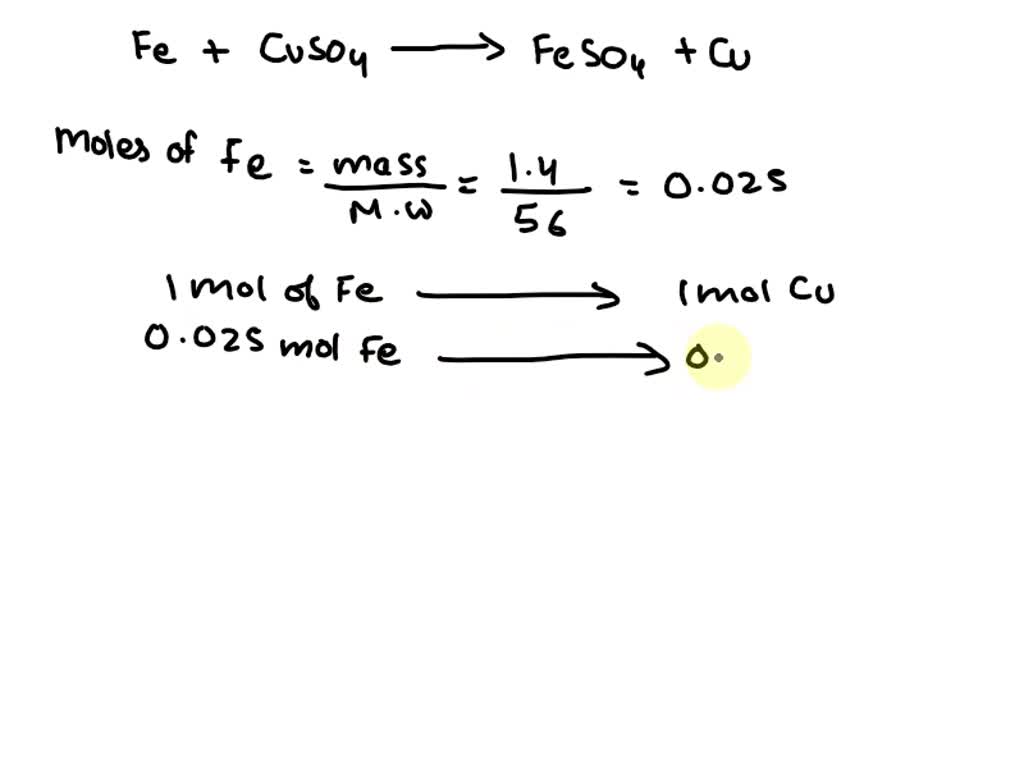 Fe + CuSO4 ⟶ FeSO4 + Cu
Moles of Fe = mass / M.W = 1.4 / 56 = 0.025
1 mol of Fe ⟶ 1 mol Cu
0.025 mol Fe ⟶ 0.